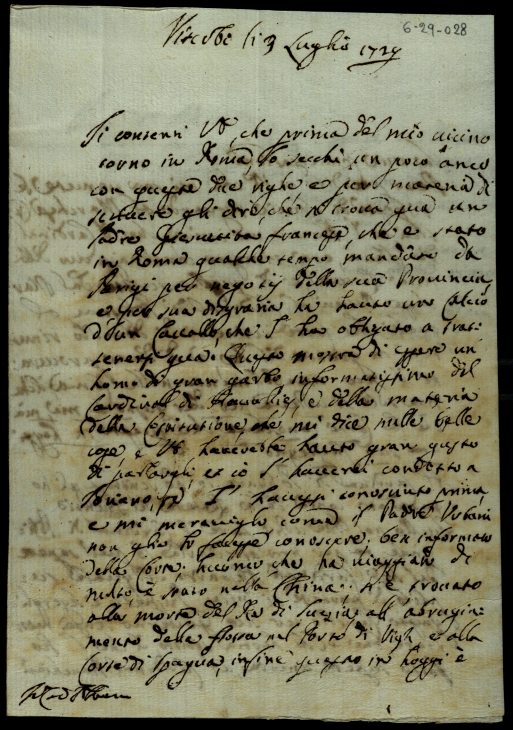 6-29-028
Viterbo li 3 Luglio 1729
Si contenti VS, che prima del mio vicino
torno in Roma, Io secchi un poco anco
con queste due righe e per materia di
scrivere gli dirò, che si trova qua un
Padre Francese, che è stato
in Roma qualche tempo mandato da
Parigi per negotij della sua Provincia,
e per sua disgrazia ha hauto un calcio
d'un Cavallo, che l'ha obligato a trat-
tenersi qua. Questo mostra di essere un
homo di gran garbo informatissimo del
Cardinal di e della materia
della Costitutione, che mi dice mille belle
cose, e VS haverebbe hauto gran gusto
di parlargli, et io l'haverei condotto a
Soriano, se l'havessi conosciuto prima,
e mi meraviglio come il Padre Urbani
non glie lo facesse conoscere. ben informato
della Corte, ha viaggiato di
molto, è stato nella China, si è trovato
alla morte del Rè di Suezia, all'abrugia-
mento della flotta nel Porto di Vigh, e alla
Corte di Spagna, insine in hoggi è